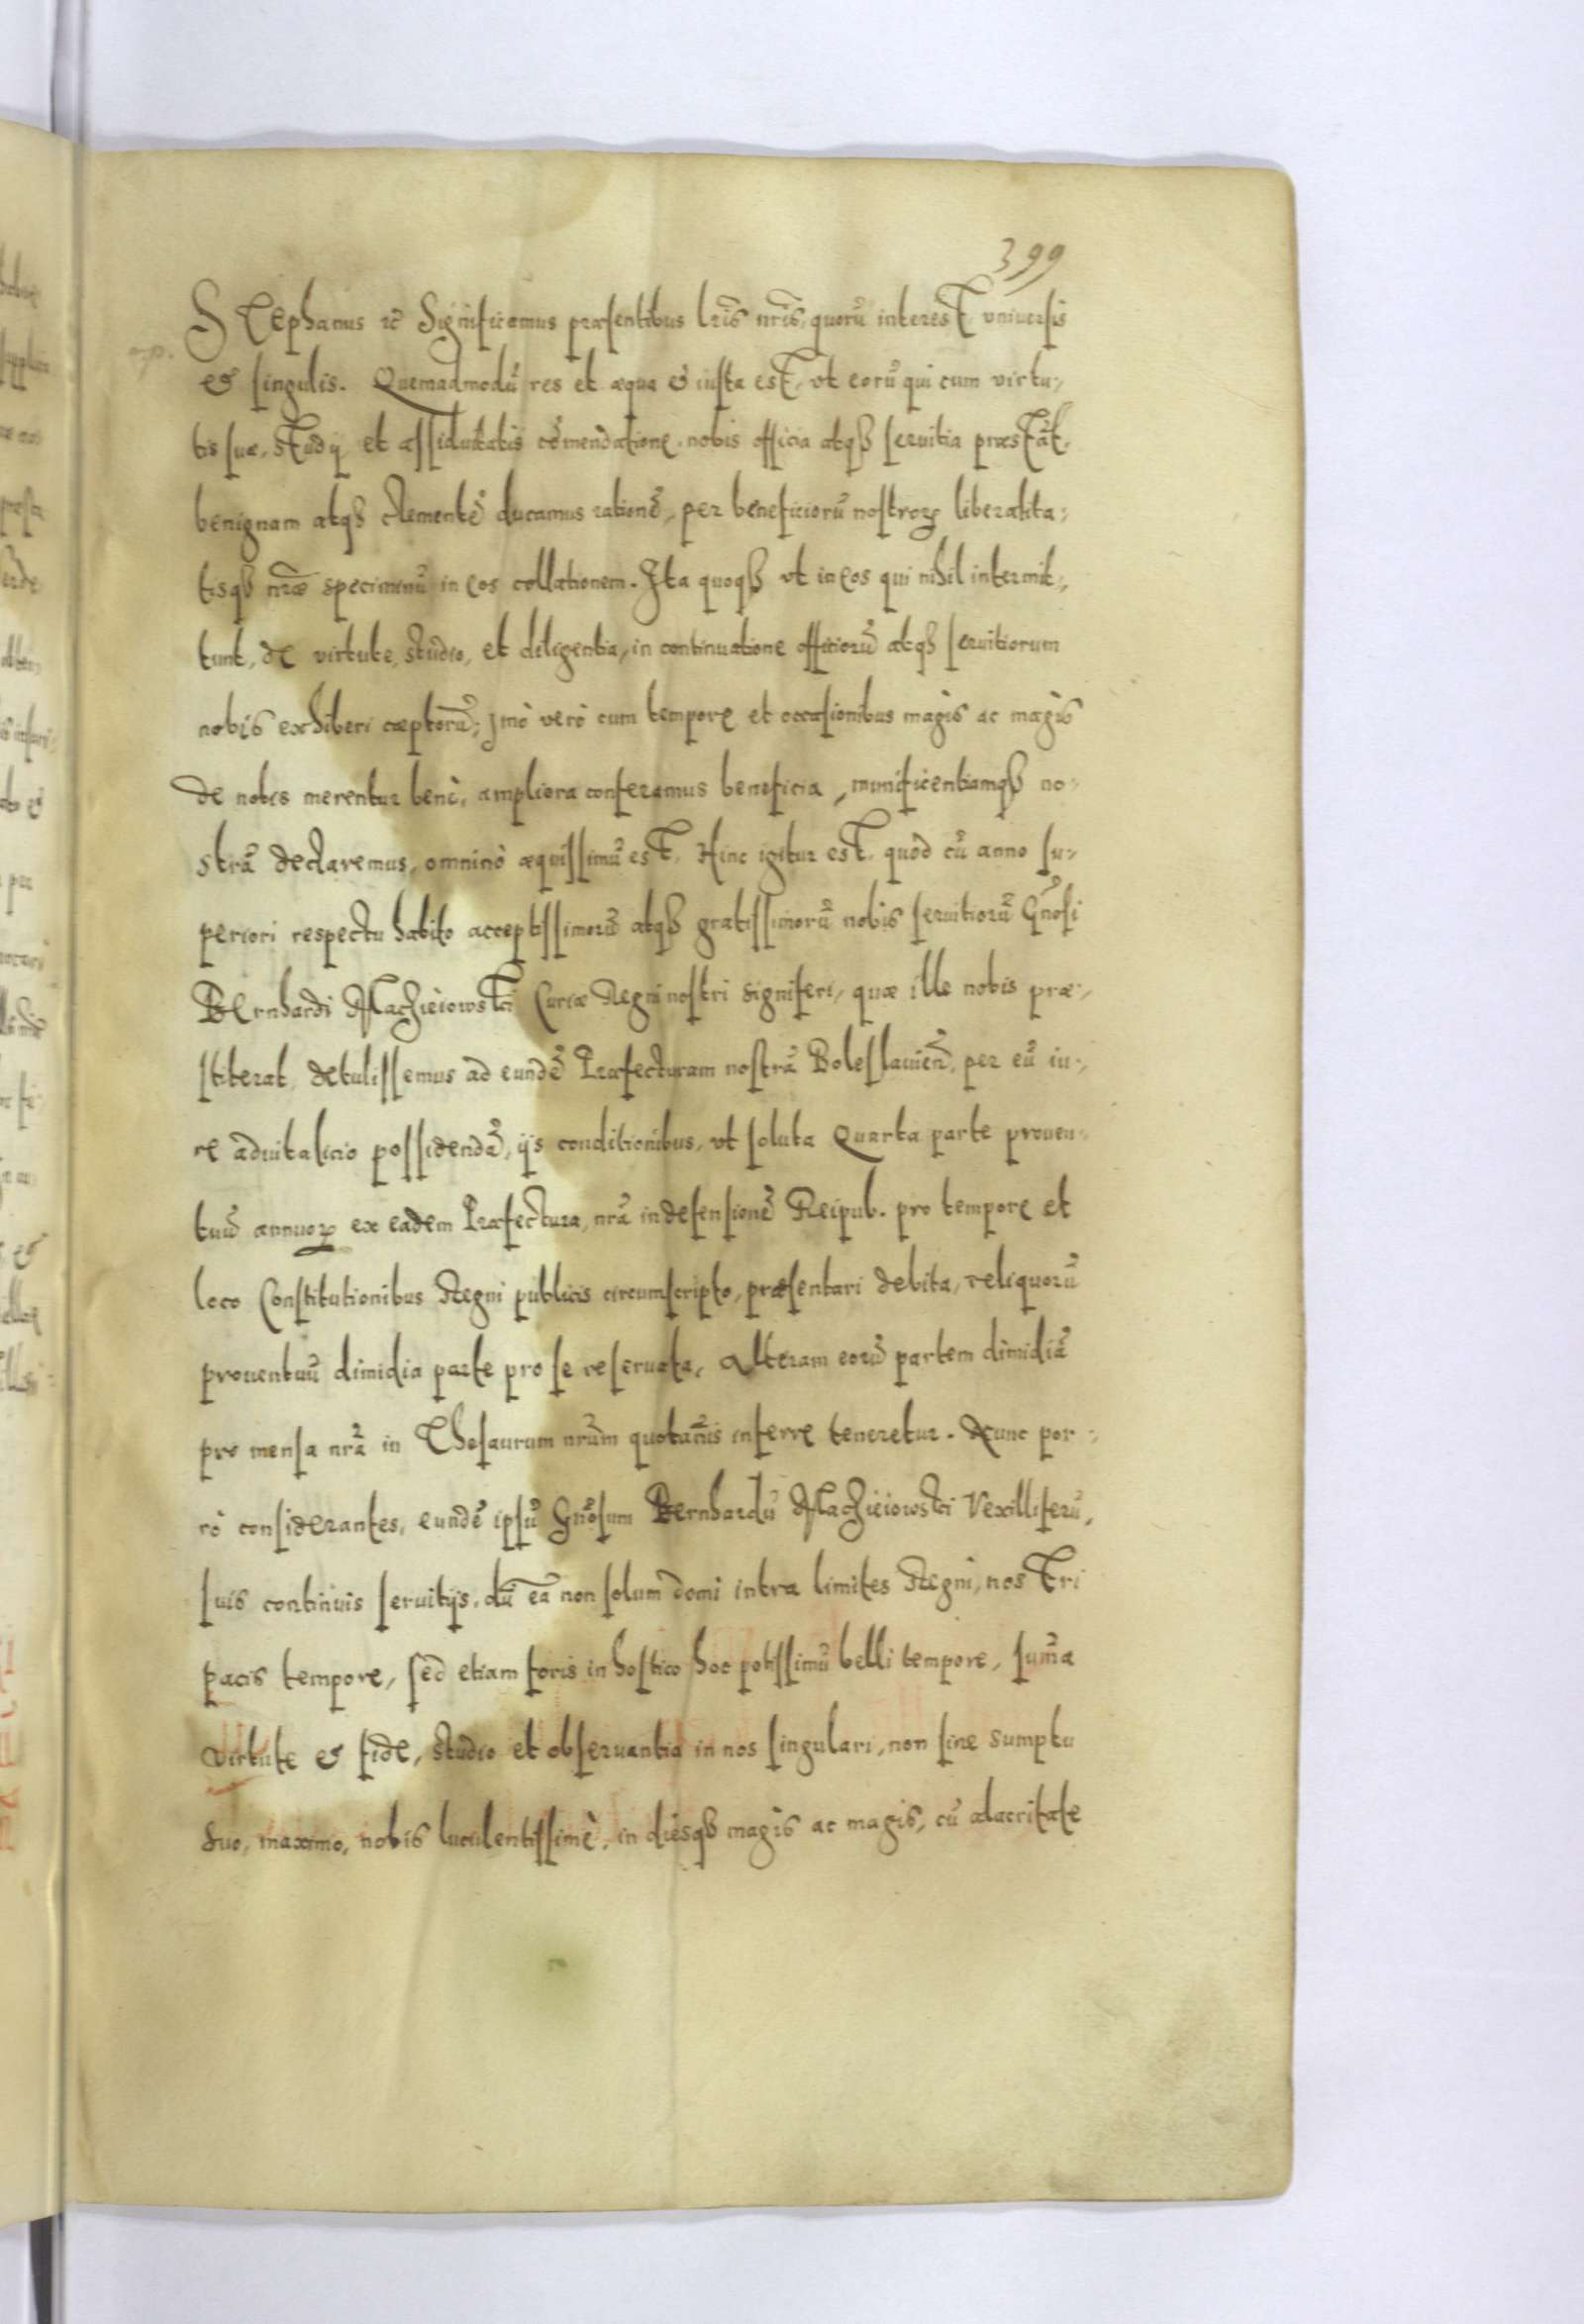 399
Stephanus etc̄ Significamus præsentibus lr̄is nr̄is, quorū interest, vniuersis
et singulis. Quemadmodū res et æqua et iusta est, vt eorū qui cum virtu-
tis suæ, studij et assiduitatis cōmendatione nobis officia atqꝫ seruitia præstāt,
benignam atqꝫ clementē ducamus rationē, per beneficiorū nostroꝝ liberalita-
tisqꝫ nr̄æ speciminū in eos collationem. Ita quoqꝫ vt in eos qui nihil intermit-
tunt, de virtute, studio, et diligentia, in continuatione officiorū atqꝫ seruitiorum
nobis exhiberi cæptorū, imò verò cum tempore et occasionibus magis ac magis
de nobis merentur benè, ampliora conferamus beneficia, munificentiamqꝫ no-
strā declaremus, omninò æquissimū est. Hinc igitur est, quòd cū anno su-
periori respectu habito acceptissimorū atqꝫ gratissimorū nobis seruitiorū Gn̄osi
Bernhardi Maczieiowski Curiæ Regni nostri signiferi, quæ ille nobis præ-
stiterat, detulissemus ad eundē Præfecturam nostrā Boleslauien̄, per eū iu-
re aduitalicio possidendā, ijs conditionibus, vt soluta Quarta parte prouen-
tuū annuoꝝ ex eadem Præfectura, nr̄a in defensionē Reipub. pro tempore et
loco Constitutionibus Regni publicis circumscripto, præsentari debita, reliquorū
prouentuū dimidia parte pro se reseruata, Alteram eorū partem dimidiā
pro mensa nr̄a in Thesaurum nr̄um quotan̄is inferre teneretur. Nunc por-
rò considerantes, eundē ipsū Gn̄osum Bernhardū Maczieiowski Vexilliferū,
suis continuis seruitijs, dū ea non solum domi intra limites Regni, nostri
pacis tempore, sed etiam foris in hostico hoc potissimū belli tempore, sum̄a
virtute et fide, studio et obseruantia in nos singulari, non sine sumptu
suo, maximo, nobis luculentissimè, in diesqꝫ magis ac magis, cū alacritate